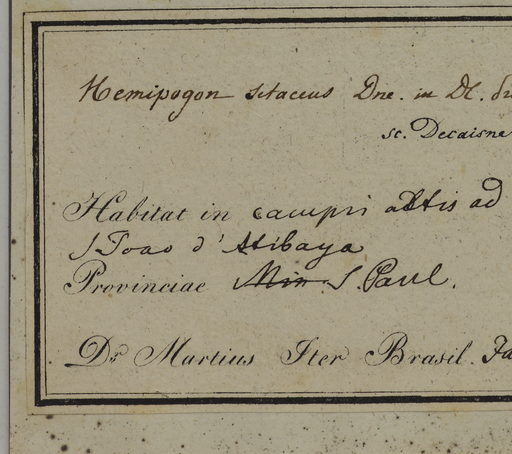 Hemipogon setaceus Dne. in DC.
sc. Decaisne
Habitat in campis altis ad
S Joao d'Atibaya
Provinciae Min. S. Paul.
Dr Martius Iter Brasil.